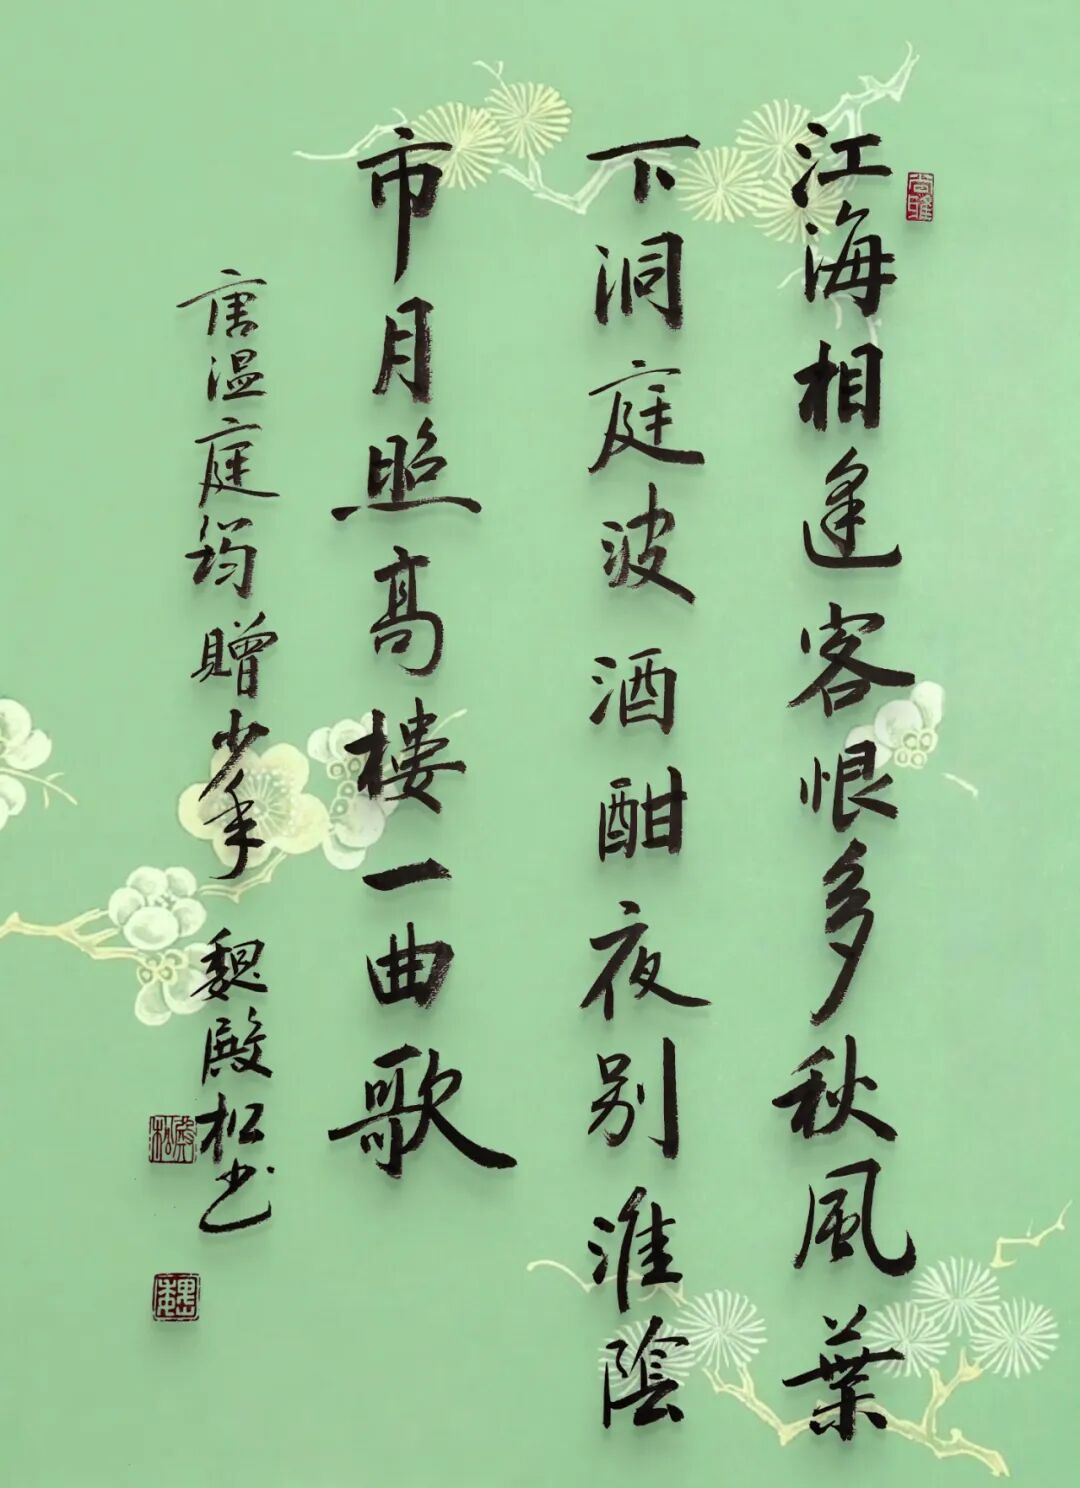 江海相逢客恨多秋風葉
下洞庭波酒酣夜别淮陰
市月照高樓一曲歌
唐温庭筠贈少年
魏殿松书
殿松
魏